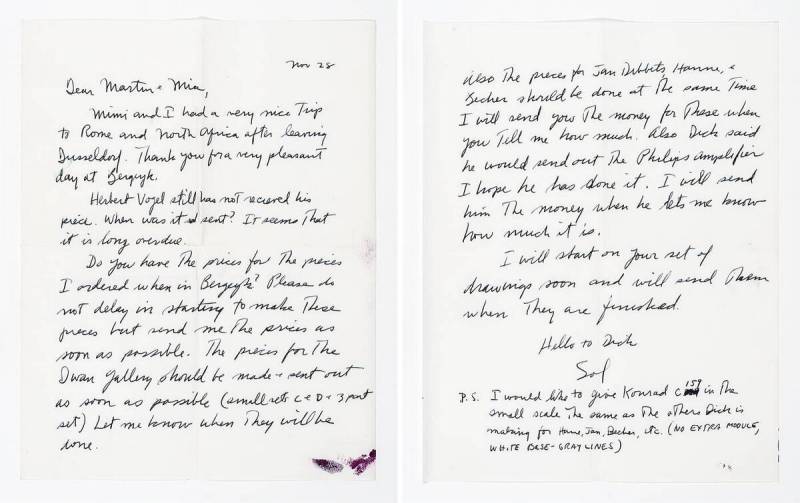 Nov 28
Dear Martin + Mia,
Mimi and I had a very nice Trip
to Rome and North Africa after leaving
Dusseldorf. Thank you for a very pleasant
day at Bergeyk.
Herbert Vogel still has not recieved his
piece. When was it sent? It seems That
it is long overdue.
Do you have The prices for The pieces
I ordered when in Bergeyk? Please do
not delay in starting to make These
pieces but send me The prices as
soon as possible. The pieces for The
Dwan Gallery should be made + sent out
as soon as possible (small sets C + D + 3 part
set) Let me know when They will be
done.
Also The pieces for Jan Dibbits, Hanne, +
Becher should be done at The same Time
I will send you The money for These when
you Tell me how much. Also Dick said
he would send out The Philips amplifier
I hope he has done it. I will send
him The money when he lets me know
how much it is.
I will start on your set of
drawings soon and will send Them
when They are finished.
Hello to Dick
Sol
P.S. I would like to give Konrad C 159 in The
small scale The same as The others Dick is
making for Hanne, Jan, Becher, etc. (NO EXTRA MODULE,
WHITE BASE-GRAY LINES)